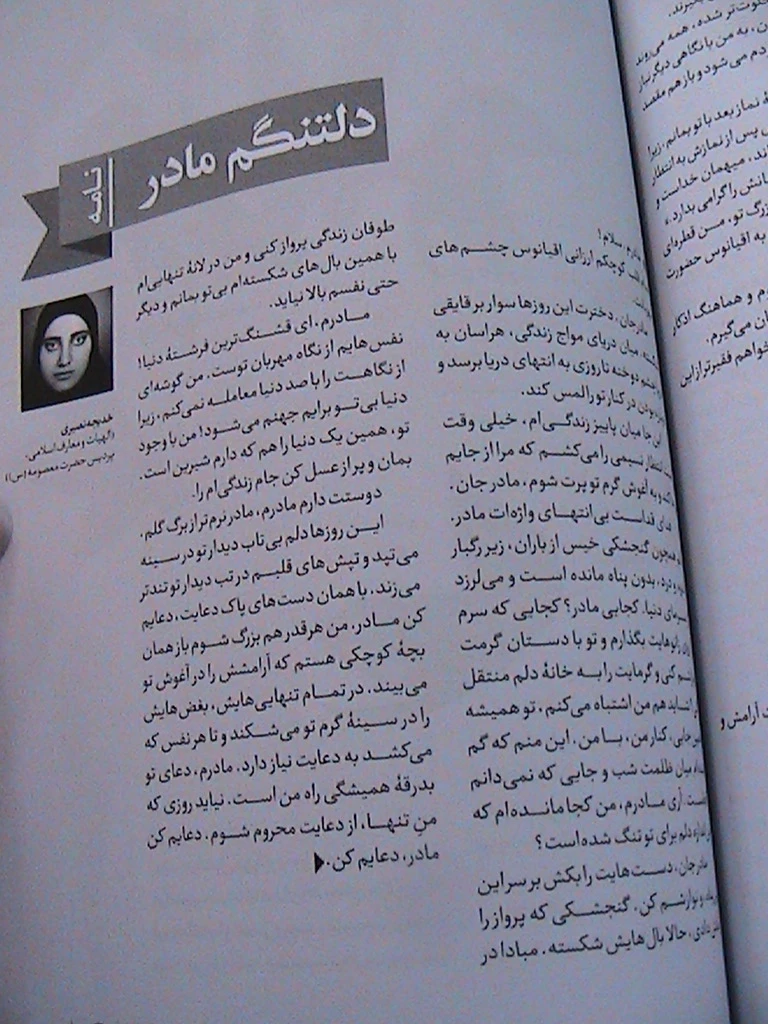 دلتنگم مادر
نامه
خدیجه نصیری
(الهیات و معارف اسلامی،
پردیس حضرت معصومه (س))
مادرم، سلام!
قلب کوچکم ارزانی اقیانوس چشم‌های
مادرجان، دخترت این روزها سوار بر قایقی
میان دریای مواج زندگی، هراسان به
دوخته تا روزی به انتهای دریا برسد و
بودن در کنار تو را لمس کند.
این جا میان پاییز زندگی‌ام، خیلی وقت
انتظار نسیمی را می‌کشم که مرا از جایم
و به آغوش گرم تو پرت شوم، مادر جان.
فدات بی‌انتهای واژه‌ات مادر.
همچون گنجشکی خیس از باران، زیر رگبار
درد، بدون پناه مانده است و می‌لرزد
سرمای دنیا. کجایی مادر؟ کجایی که سرم
زانوهایت بگذارم و تو با دستان گرمت
کنی و گرمایت را به خانهٔ دلم منتقل
شاید هم من اشتباه می‌کنم، تو همیشه
همین جایی، کنار من، با من. این منم که گم
میان ظلمت شب و جایی که نمی‌دانم
آری مادرم، من کجا مانده‌ام که
دلم برای تو تنگ شده است؟
مادرجان، دست‌هایت را بکش بر سر این
و نوازشم کن. گنجشکی که پرواز را
دادی، حالا بال‌هایش شکسته. مبادا در
طوفان زندگی پرواز کنی و من در لانهٔ تنهایی‌ام
با همین بال‌های شکسته‌ام بی‌تو بمانم و دیگر
حتی نفسم بالا نیاید.
مادرم، ای قشنگ‌ترین فرشتهٔ دنیا!
نفس‌هایم از نگاه مهربان توست. من گوشه‌ای
از نگاهت را با صد دنیا معامله نمی‌کنم، زیرا
دنیا بی‌تو برایم جهنم می‌شود! من با وجود
تو، همین یک دنیا را هم که دارم شیرین است.
بمان و پر از عسل کن جام زندگی‌ام را.
دوستت دارم مادرم، مادر نرم‌تر از برگ گلم.
این روزها دلم بی‌تاب دیدار تو در سینه
می‌تپد و تپش‌های قلبم در تب دیدار تو تندتر
می‌زند. با همان دست‌های پاک دعایت، دعایم
کن مادر. من هرقدر هم بزرگ شوم باز همان
بچهٔ کوچکی هستم که آرامشش را در آغوش تو
می‌بیند. در تمام تنهایی‌هایش، بغض‌هایش
را در سینهٔ گرم تو می‌شکند و تا هر نفس که
می‌کشد به دعایت نیاز دارد. مادرم، دعای تو
بدرقهٔ همیشگی راه من است. نیاید روزی که
من تنها، از دعایت محروم شوم. دعایم کن
مادر، دعایم کن.
شده، همه می‌روند
به من با نگاهی دیگر نیاز
می‌شود و باز هم مقصد
نماز بعد با تو بمانم، زیرا
پس از نمازش به انتظار
میهمان خداست و
را گرامی بدارد.
تو، من قطره‌ای
به اقیانوس حضورت
و هماهنگ اذکار
می‌گیرم.
خواهم فقیرتر از این
آرامش و